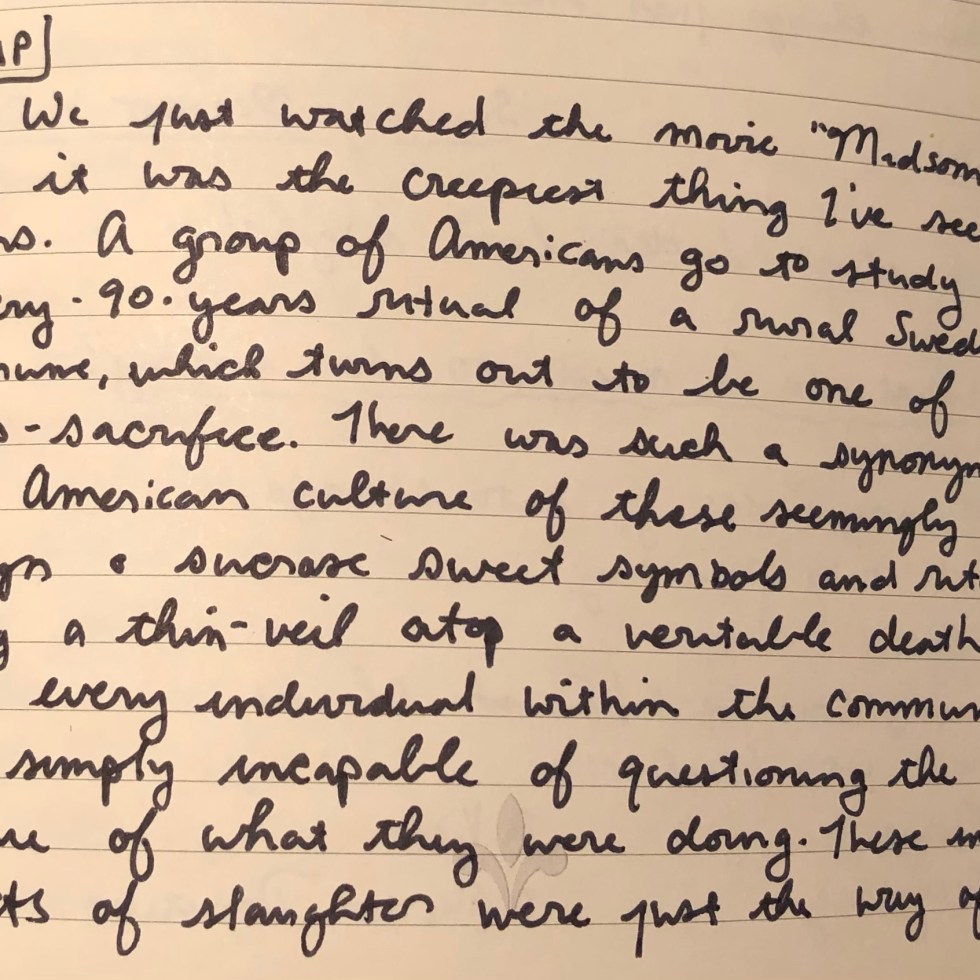 AP
We just watched the movie "Midsom
it was the creepiest thing I've see
rs. A group of Americans go to study
ery-90-years ritual of a rural Swed
mune, which turns out to be one of
s-sacrifice. There was such a synonym
American culture of these seemingly
gn & sucrose sweet symbols and rit
g a thin-veil atop a veritable death
every individual within the commun
simply incapable of questioning the
ure of what they were doing. These in
cts of slaughter were just the way of